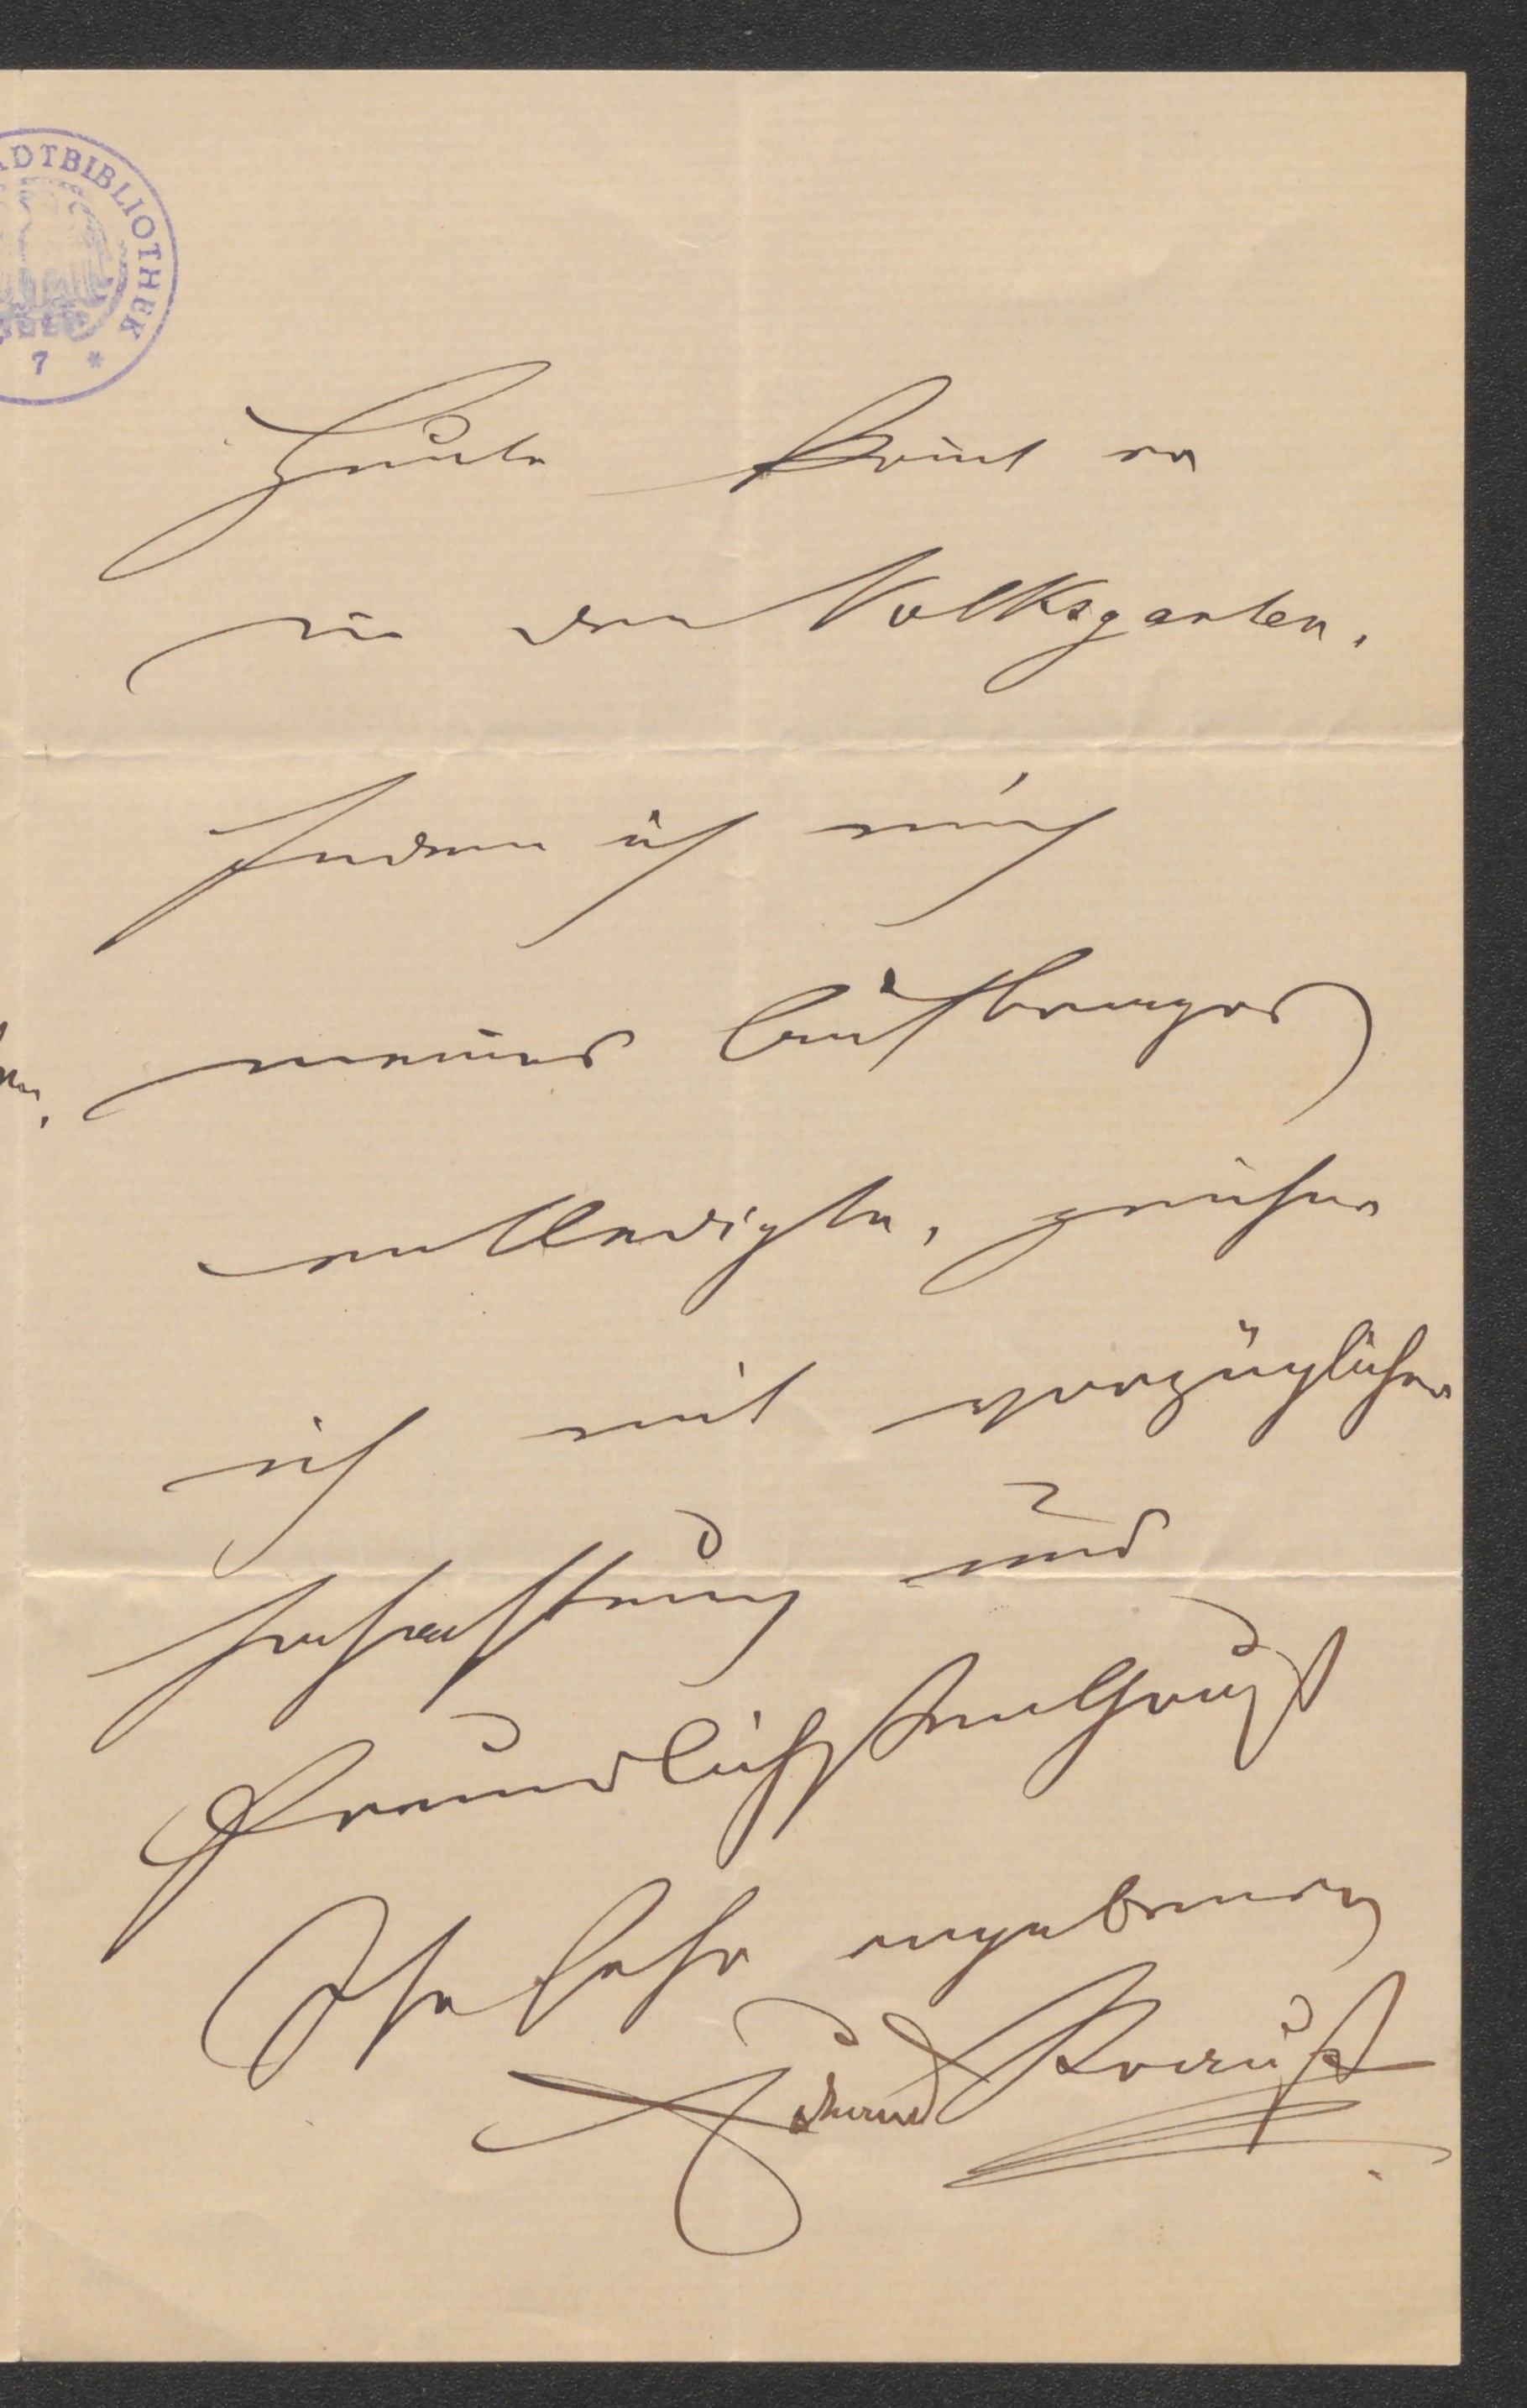 ADTBIBLIOTHEK
7 *
Heute kömt er
in den Volksgarten.
Indem ich mich
meines Auftrages
entledigte, zeichne
ich mit vorzüglicher
Hochachtung und
freundlichstem Gruß
Ihr sehr ergebener
Eduard